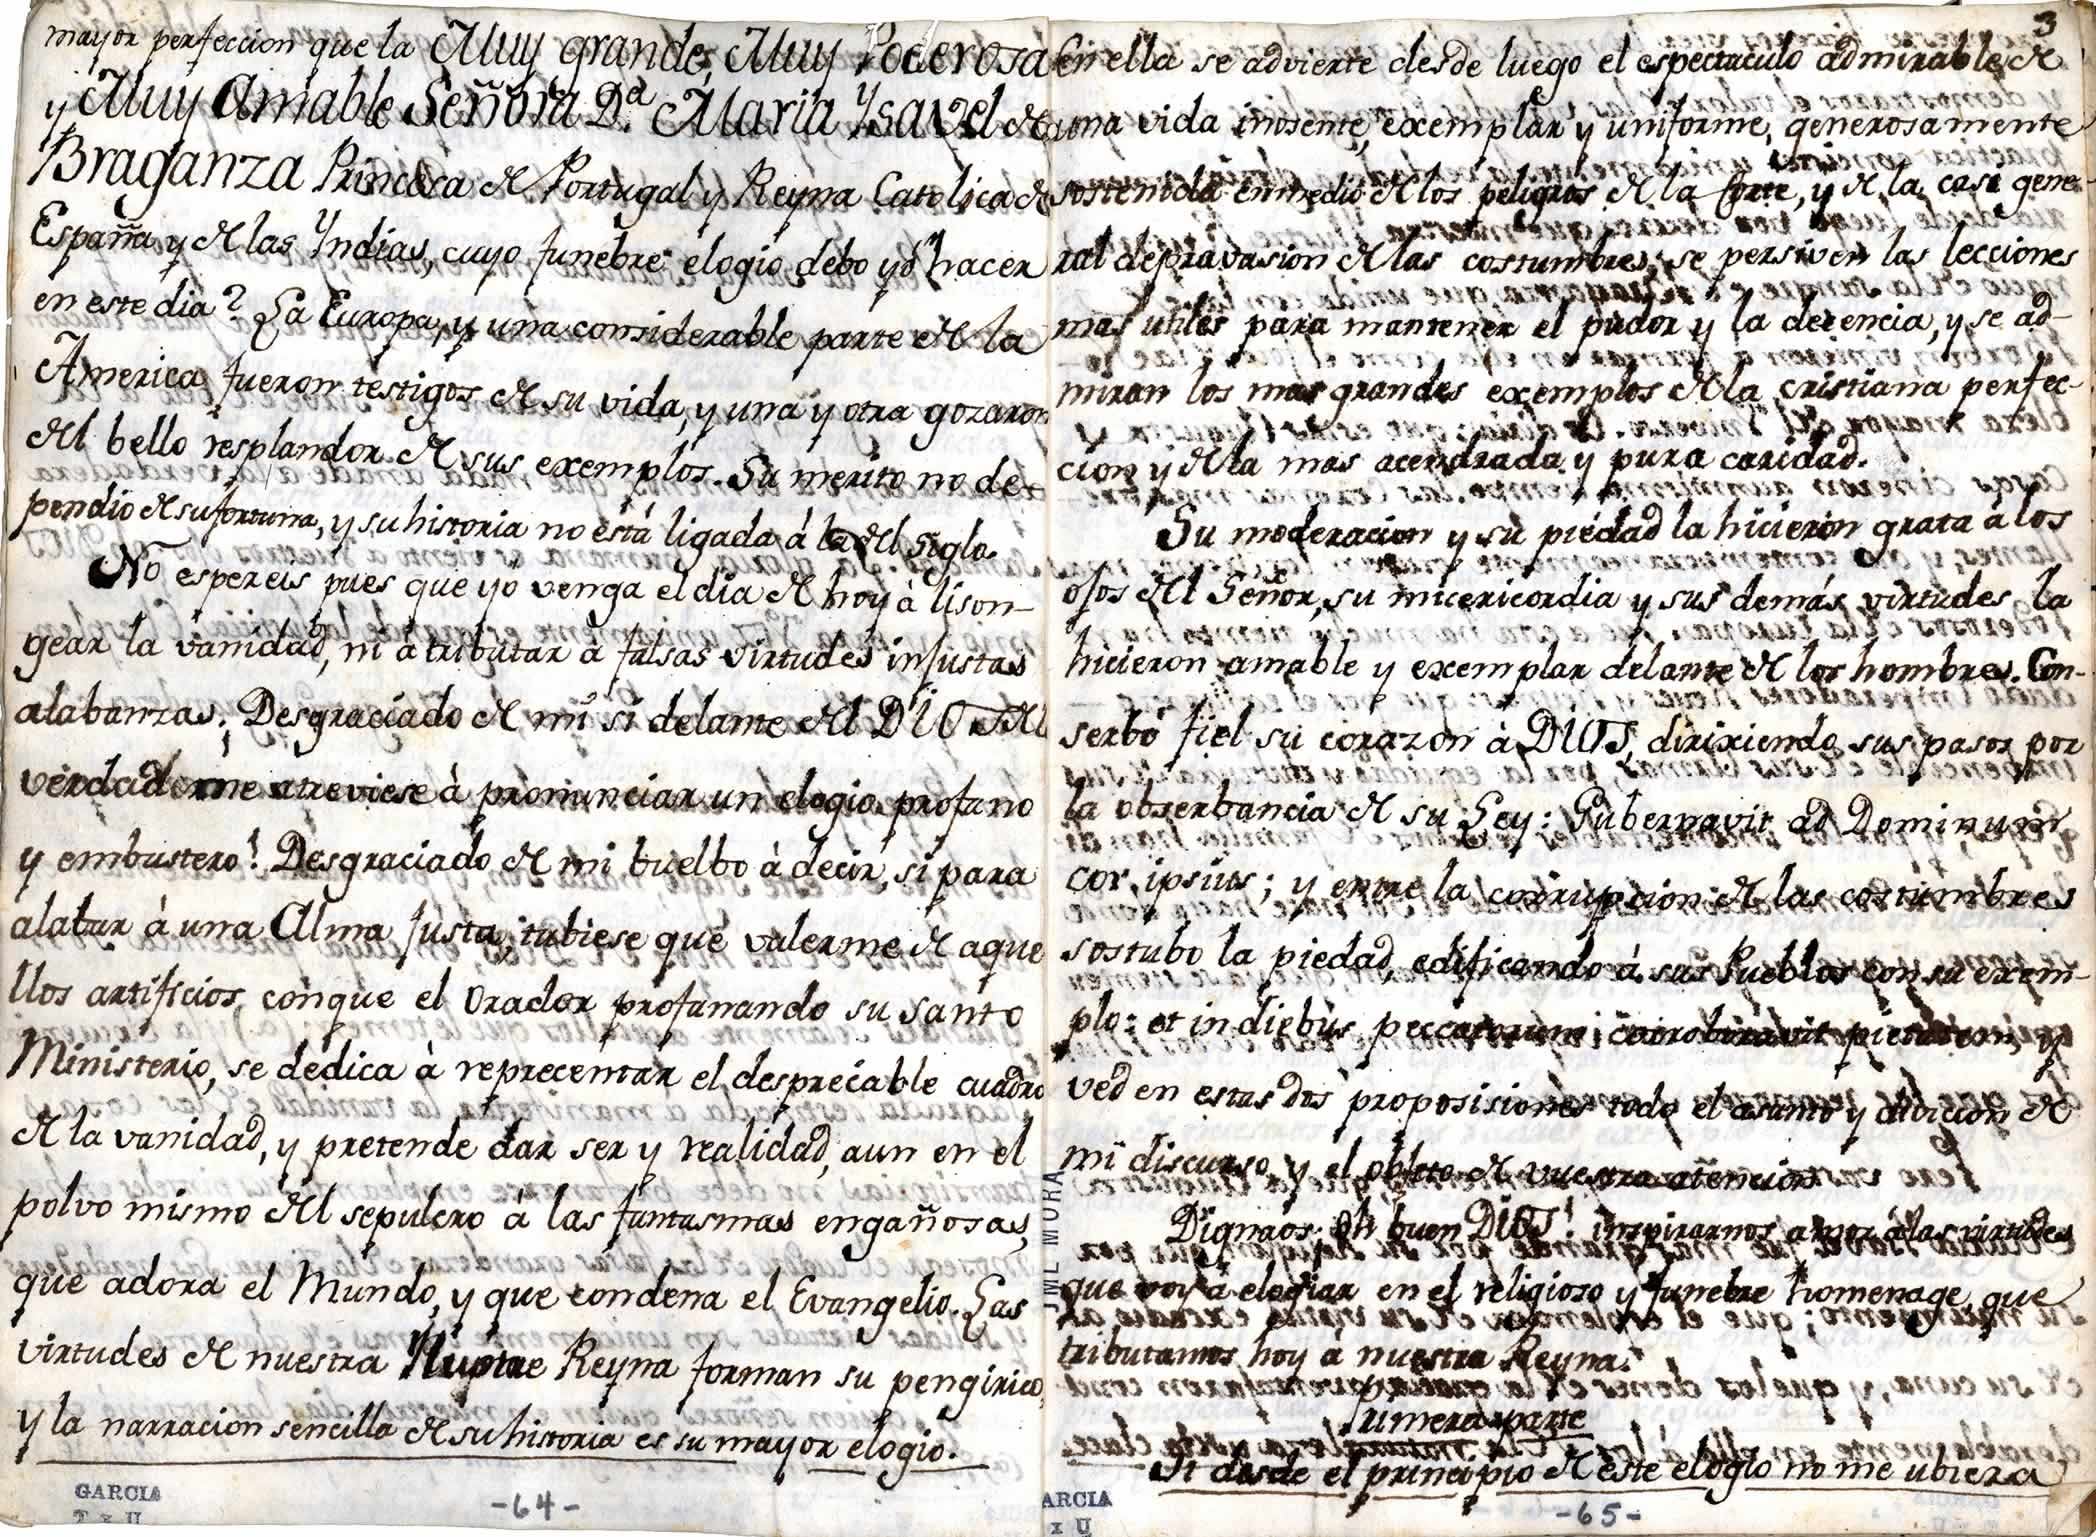 mayor perfeccion que la Muy grande, Muy Poderosa
y Muy Amable Señora D.ª Maria Ysavel de
Braganza Princesa de Portugal y Reyna Catolica de
España y de las Yndias, cuyo funebre elogio debo yo hacer
en este dia? La Europa, y una considerable parte de la
America fueron testigos de su vida, y una y otra gozaron
del bello resplandor de sus exemplos. Su merito no de-
pendio de su fortuna, y su historia no está ligada á la del siglo.
No espereis pues que yo venga el dia de hoy à lison-
gear la vanidad, ni á tributar á falsas virtudes injustas
alabanzas; Desgraciado de mi si delante del DIOS del
verdad me atreviese à pronunciar un elogio profano
y embustero! Desgraciado de mi buelbo à decir, si para
alabar à una Alma justa, tubiese que valerme de aque
llos artificios, conque el Orador profanando su santo
Ministerio, se dedica à reprecentar el despreciable cuadro
de la vanidad, y pretende dar ser y realidad, aun en el
polvo mismo del sepulcro á las fantasmas engañosas,
que adora el Mundo, y que condena el Evangelio. Las
virtudes de nuestra Reyna forman su pengirico,
y la narracion sencilla de su historia es su mayor elogio.
GARCIA
-64-
3
En ella se advierte desde luego el espectaculo admirable de
una vida inosente, exemplar y uniforme, generosamente
sostenida enmedio de los peligros de la Corte, y de la casi gene-
ral depravasion de las costumbres; se persiven las lecciones
mas utiles para mantener el pudor y la decencia, y se ad-
miran los mas grandes exemplos de la cristiana perfec-
cion y de la mas acendrada y pura caridad.
Su moderacion y su piedad la hicieron grata á los
ojos del Señor, su micericordia y sus demás virtudes la
hicieron amable y exemplar delante de los hombres. Con-
serbó fiel su corazon à DIOS, dirixiendo sus pasos por
la obserbancia de su Ley: Gubernavit ad Dominum
cor ipsius; y entre la corrupcion de las costumbres
sostubo la piedad, edificando á sus Pueblos con su exem-
plo: et in diebus peccatorum corroboravit pietatem, y
ved en estas dos proposisiones todo el asunto y divicion de
mi discurso, y el obleto de vuestra atencion.
Dignaos, oh buen DIOS! inspirarnos amor á las virtudes
que voy à elogiar en el religioso y funebre homenage, que
tributamos hoy à nuestra Reyna.
Primera parte
Si desde el principio de este elogio no me ubiera
JML MORA
ARCIA
-65-